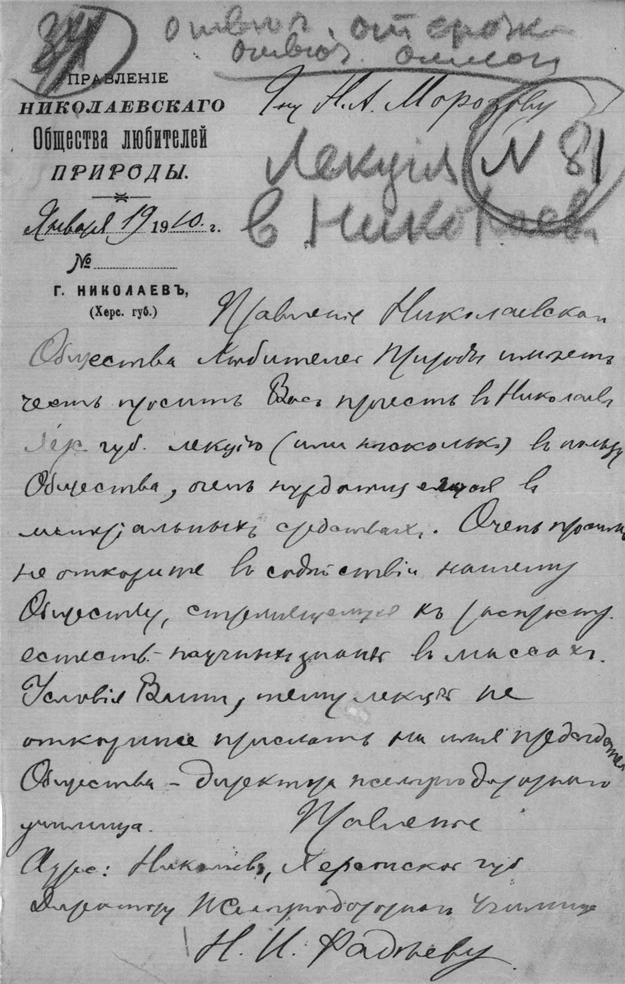 УПРАВЛЕНІЕ
НИКОЛАЕВСКАГО
Общества любителей
ПРИРОДЫ.
Января 19 1910 г.
№
Г. НИКОЛАЕВЪ,
(Херс. губ.)
Н. А. Морозову
Лекция N 81
в Николаев
Правленіе Николаевскаго
Общества Любителей Природы имѣетъ
честь просить Васъ прочесть въ Николаевѣ
Хер. губ. лекцію (или нѣсколько) въ пользу
Общества, очень нуждающееся въ
матеріальныхъ средствахъ. Очень просимъ
не отказать въ содѣйствіи нашему
Обществу, стремящемуся къ распростр.
естеств.-научныхъ знаній въ массахъ.
Условія Ваши, тему лекціи не
откажите прислать на имя предсѣдателя
Общества - директора желѣзнодорожнаго
училища. Правленіе
Адрес: Николаевъ, Херсонская губ.
Директору Желѣзнодорожнаго Училища
Н. И. Фадѣеву.